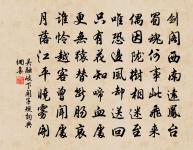 劍閣西南遠鳳臺
蜀魂何事此飛來
偶因隴樹相迷至
唯恐邊風却送回
只有花知啼血處
更無猿替斷腸哀
誰憐越客曾聞處
月落江平曉霧開
吳融岐下聞子規詞典
網集